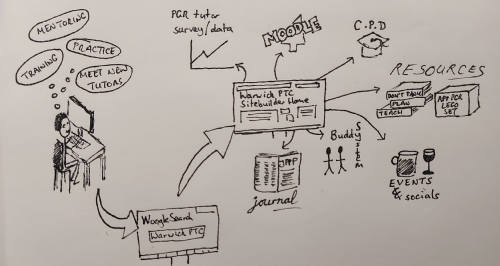 MENTORING
PRACTICE
TRAINING
MEET NEW
TUTORS
PGR tutor
survey/data
MOODLE
C.P.D
RESOURCES
DON'T PANIC
PLAN
TEACH
APP FOR
LEGO
SET
Warwick PTC
Sitebuilder Home
Buddy
System
JPPP
journal
EVENTS
& socials
WoogleSearch
Warwick PTC